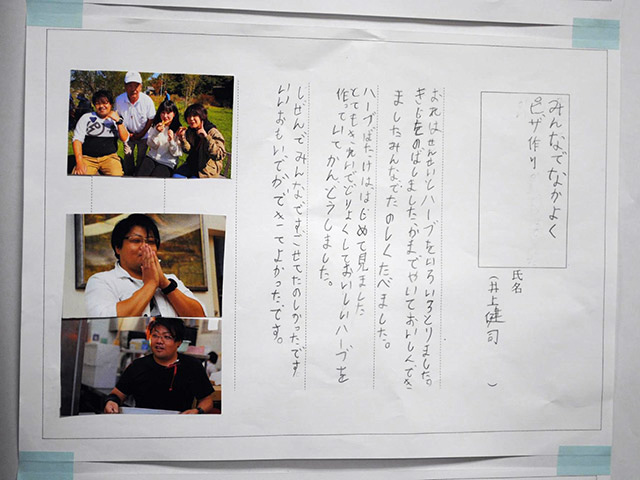 みんなでなかよく
ピザ作り
氏名
(井上健司)
おれはせんせいとハーブをいろいろとりました。
きじをのばしましたかまでやいておいしくでき
ましたみんなでたのしくたべました。
ハーブばたけははじめて見ました
とてもきれいでどりょくしておいしいハーブを
作っていてかんどうしました。
しぜんでみんなですごせてたのしかったです
いいおもいでができてよかったです。